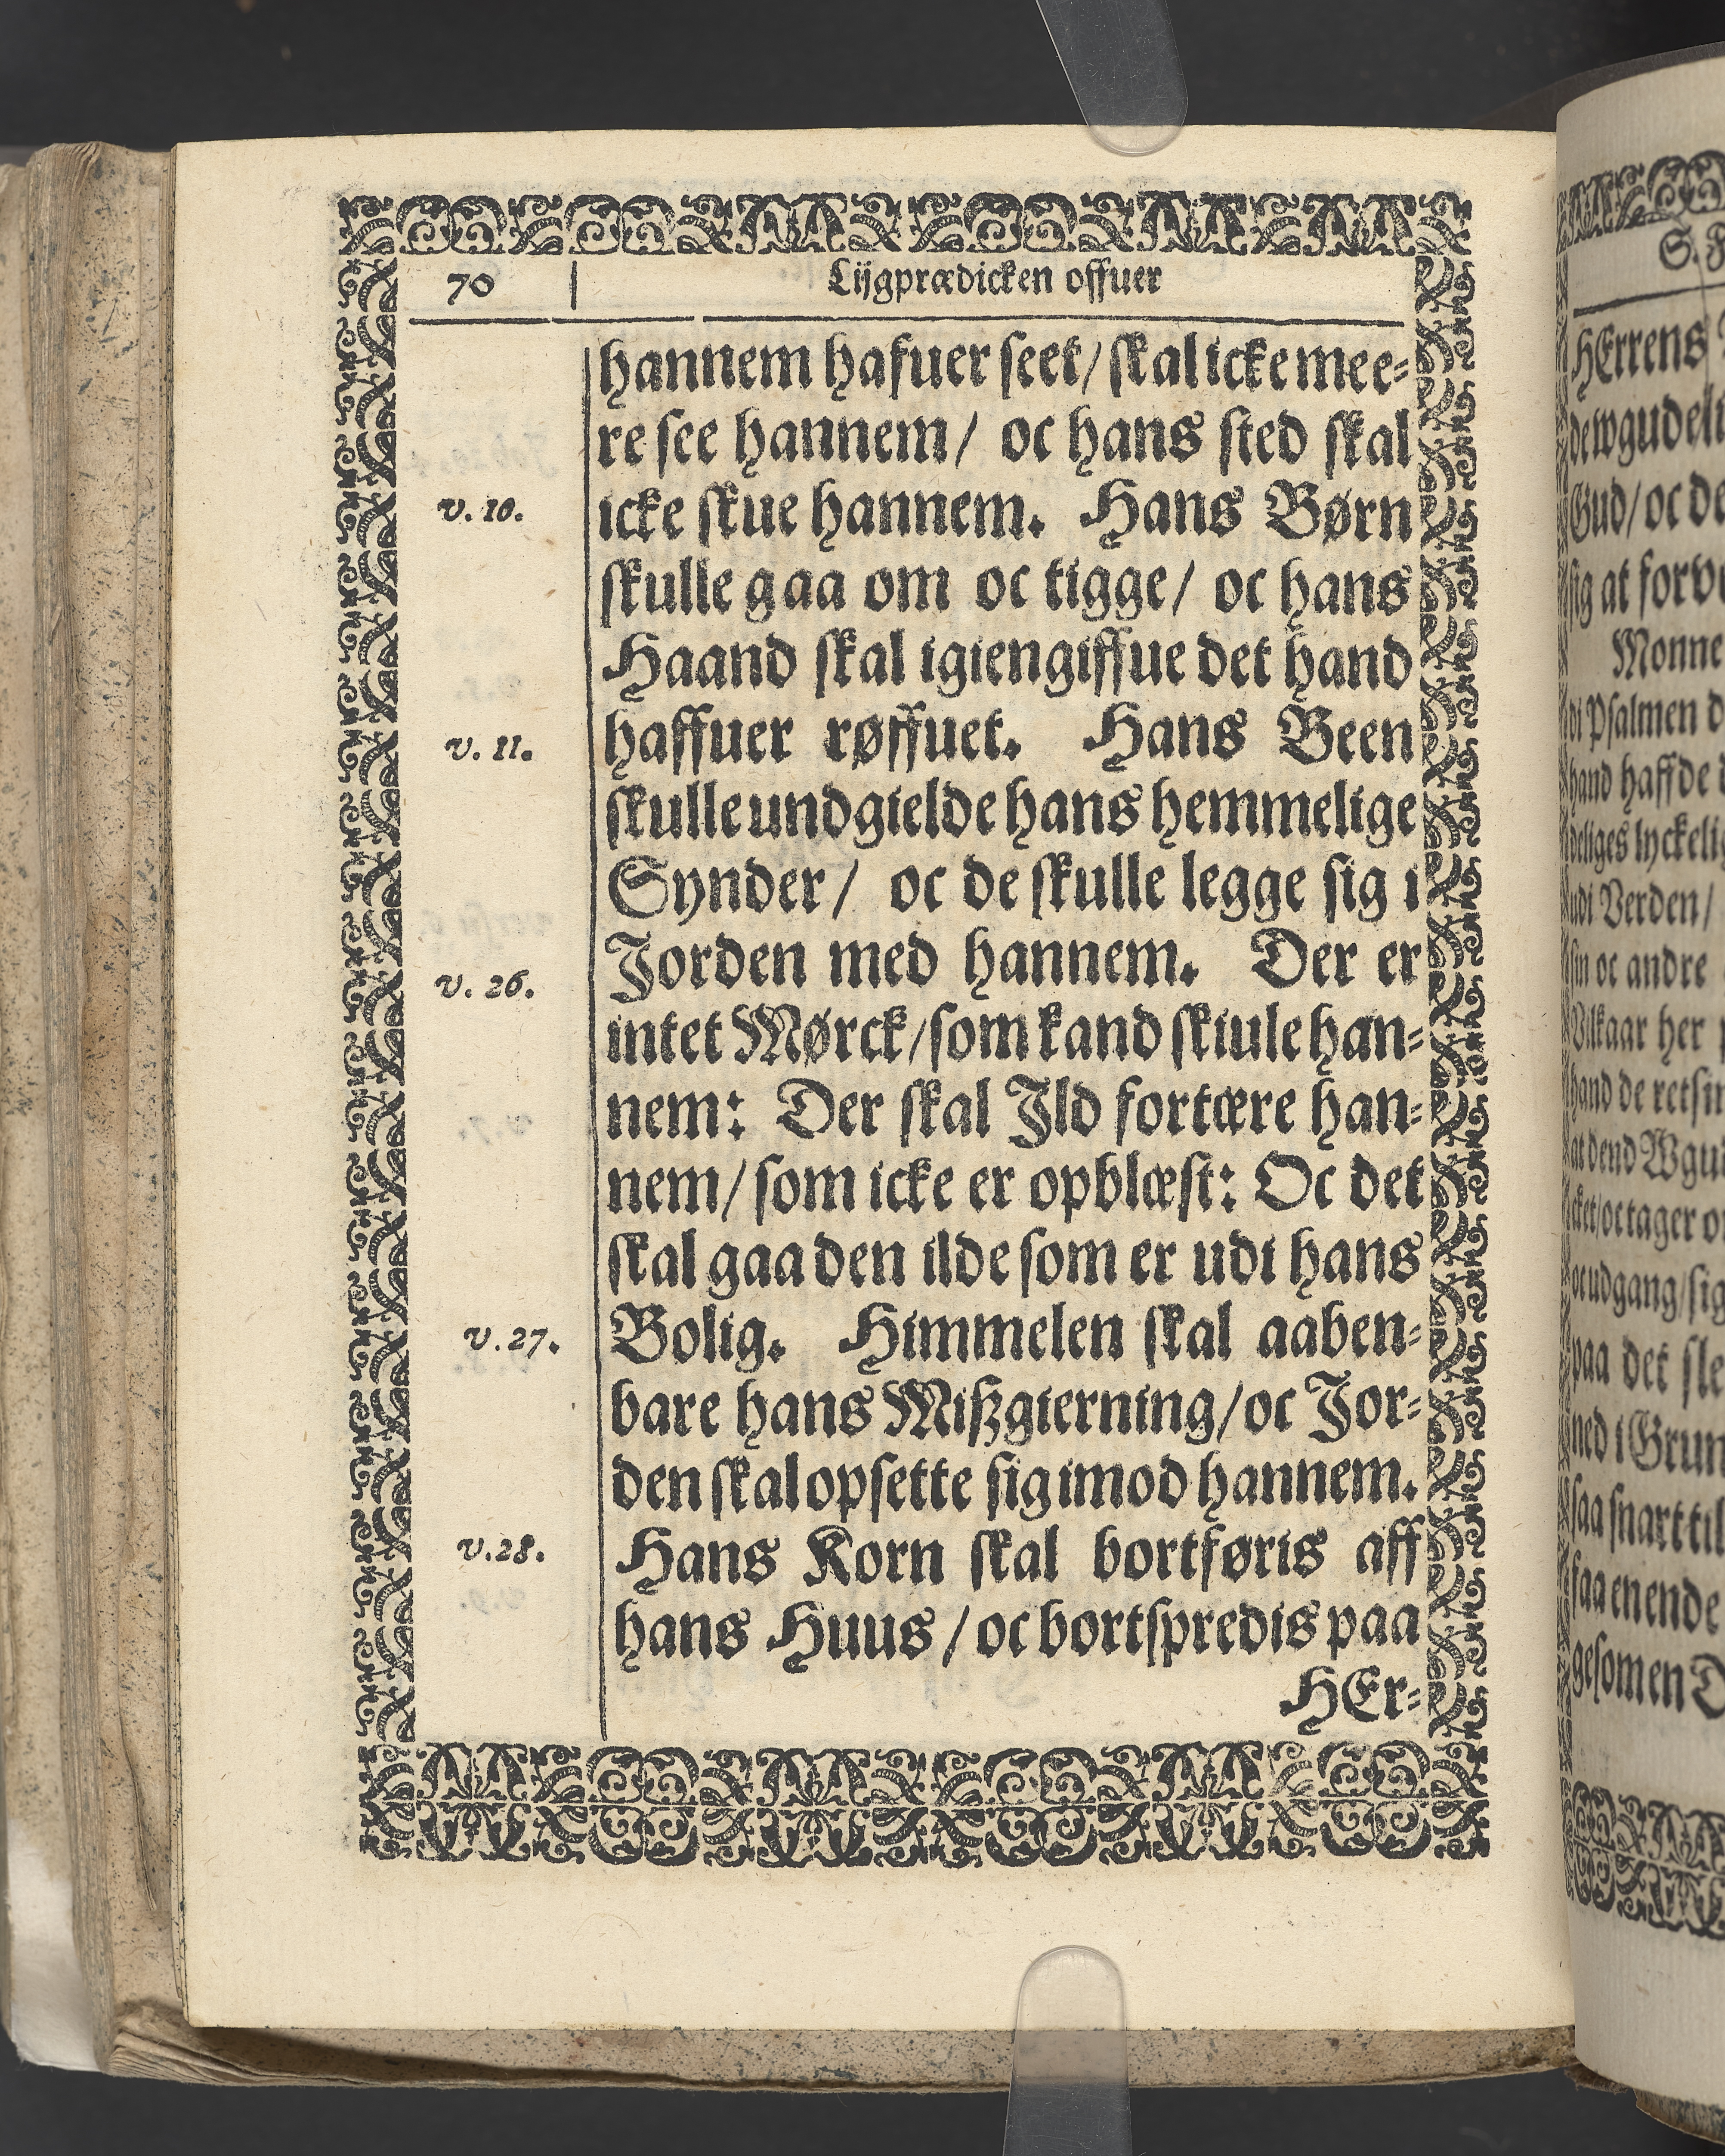 70 Lijgprædicken offuer
hannem hafuer seet/ skal icke mee-
re see hannem/ oc hans sted skal
v. 10. icke skue hannem. Hans Børn
skulle gaa om oc tigge/ oc hans
Haand skal igiengiffue det hand
v. 11. haffuer røffuet. Hans Been
skulle undgielde hans hemmelige
Synder/ oc de skulle legge sig i
v. 26. Jorden med hannem. Der er
intet Mørck/som kand skiule han-
nem: Der skal Jld fortære han-
nem/ som icke er opblæst: Oc det
skal gaa den ilde som er udi hans
v. 27. Bolig. Himmelen skal aaben-
bare hans Mißgierning/oc Jor-
den skal opsette sig imod hannem.
v. 28. Hans Korn skal bortføris aff
hans Huus/oc bortspredis paa
HEr-
HErrens
Gud/ oc
sig at
Monne
di Psalmen
hand haffde
udi Verden/
oc andre
her
hand de
at dend
paa det
ned i